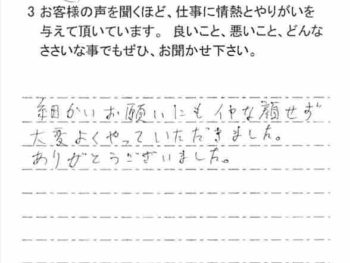 3 お客様の声を聞くほど、仕事に情熱とやりがいを
与えて頂いています。良いこと、悪いこと、どんな
ささいな事でもぜひ、お聞かせ下さい。
細かいお願いにもイヤな顔せず
大変よくやっていただきました。
ありがとうございました。